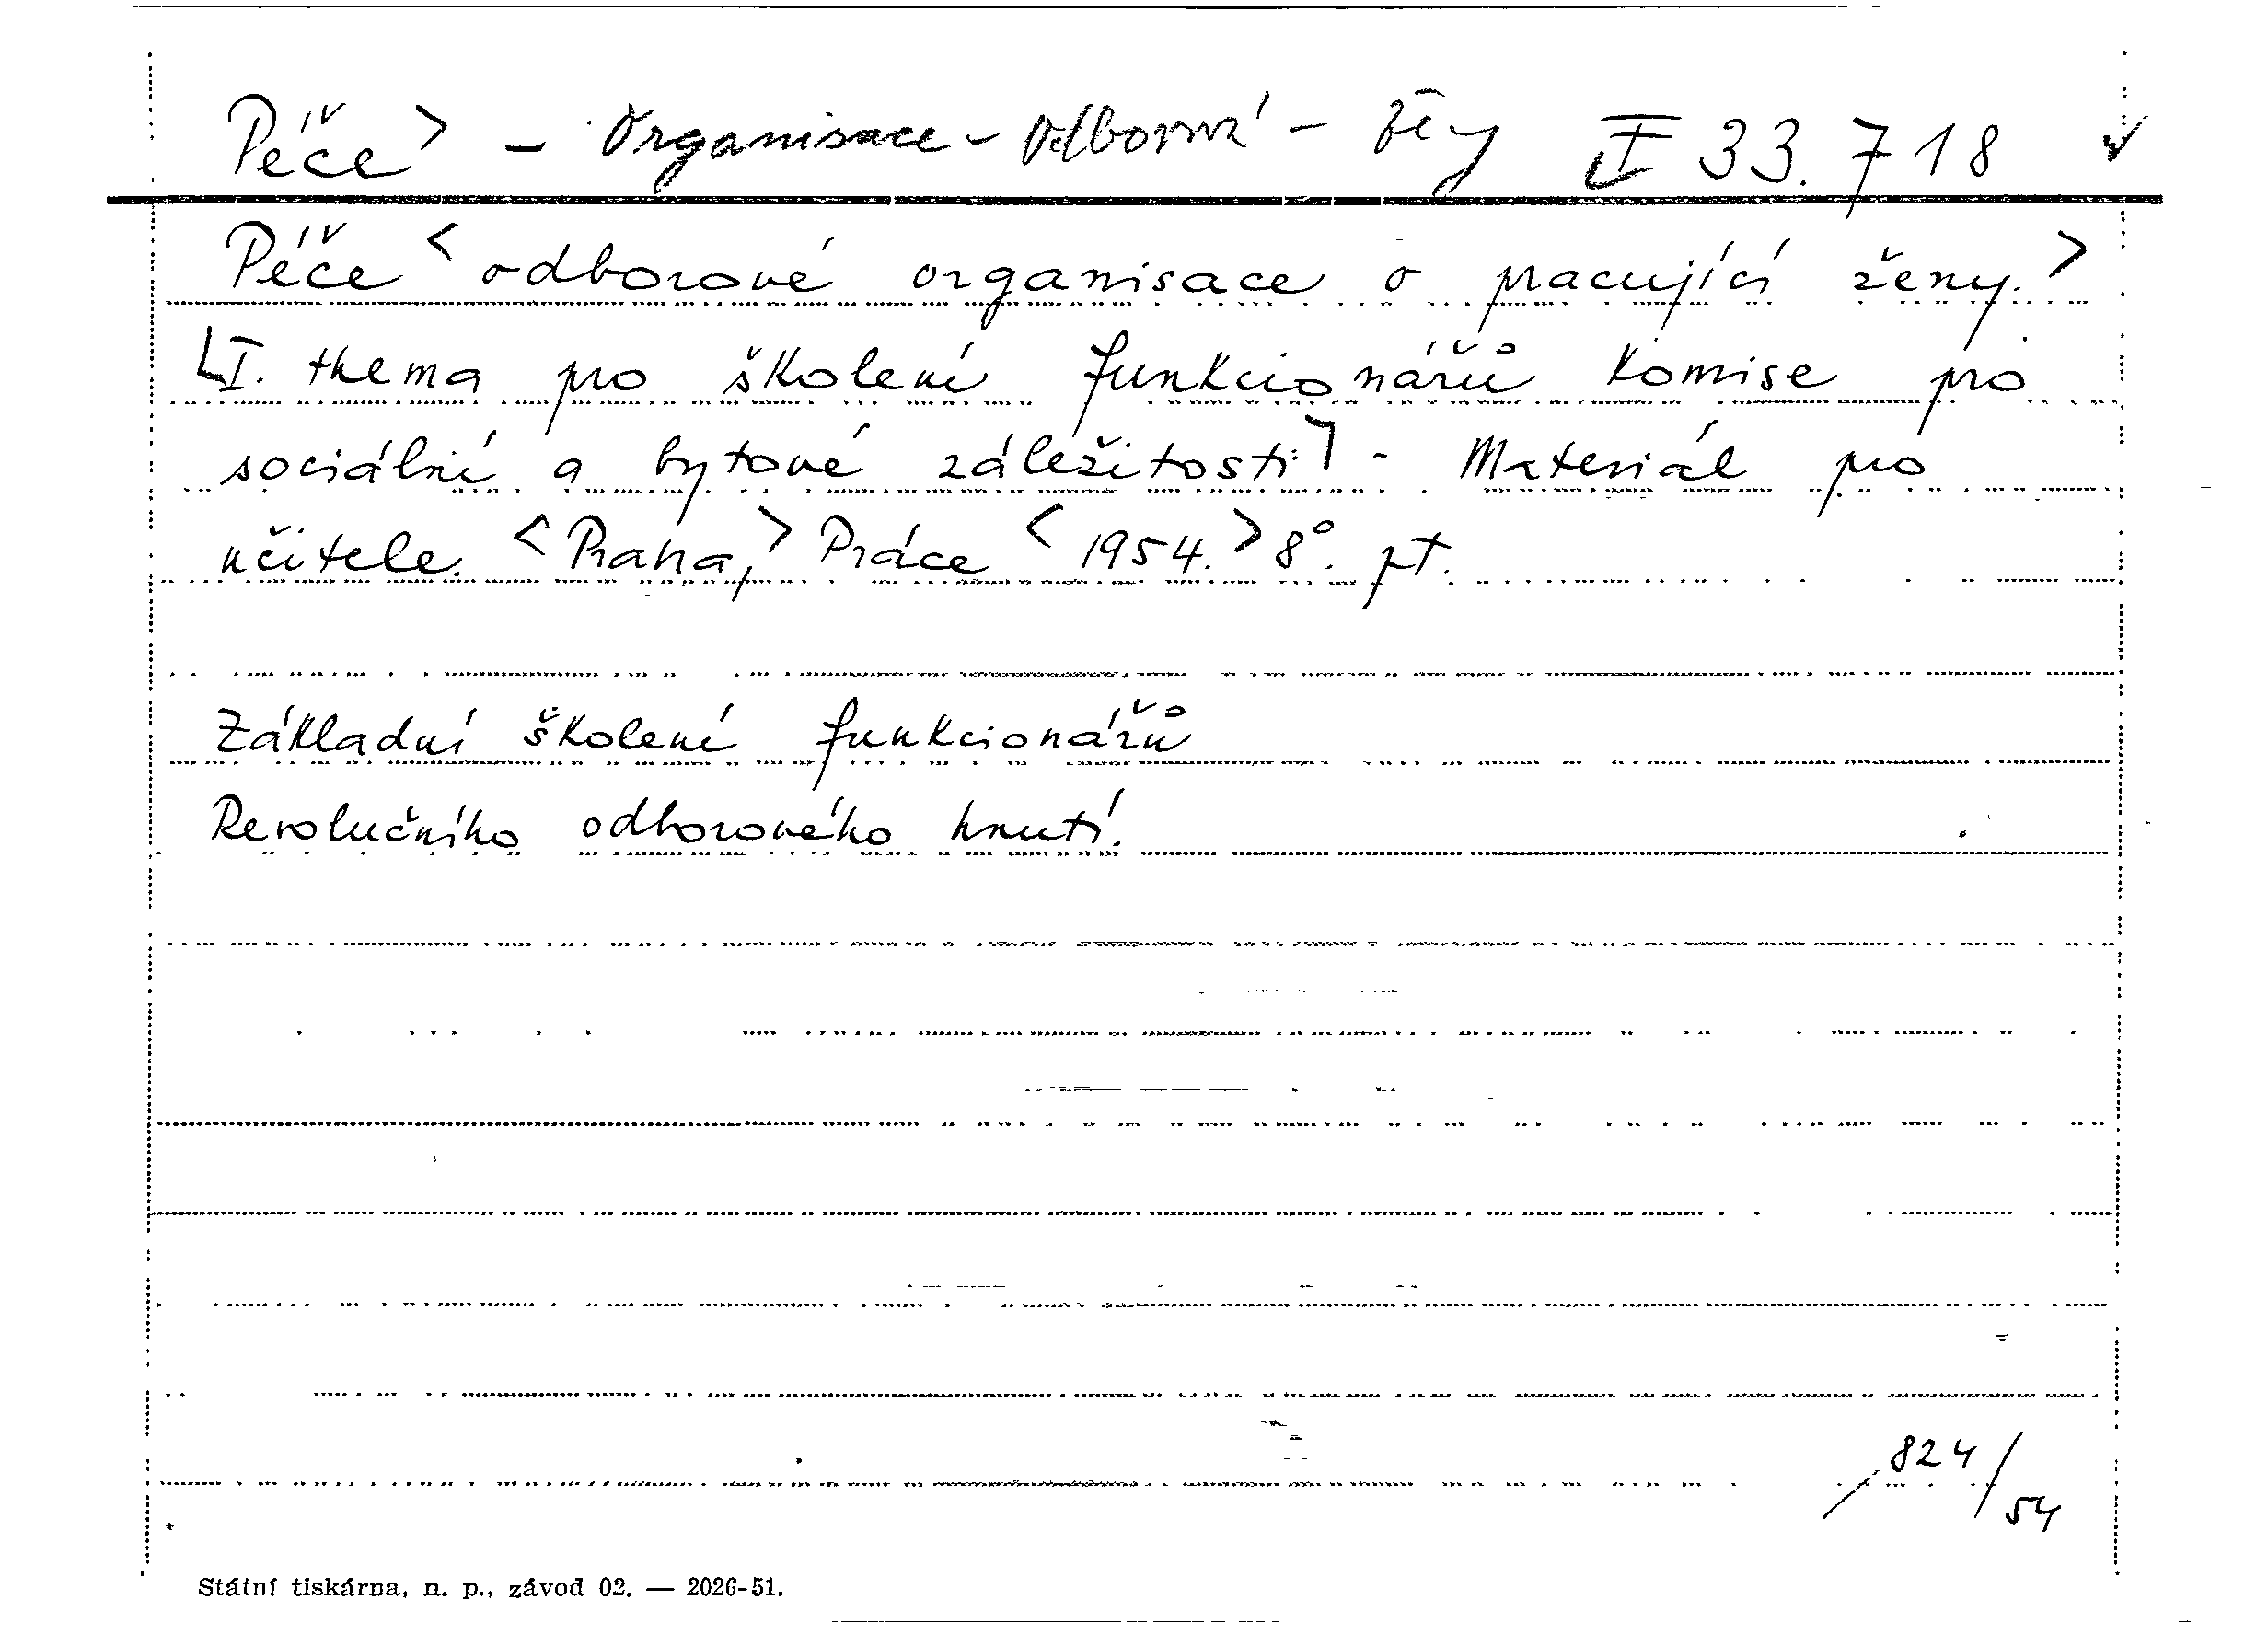 Péče > - Organisace - Odborová - žny I 33.718 v
Péče < odborové organisace o pracující ženy. >
[I. thema pro školení funkcionářů komise pro
sociální a bytové záležitosti.] - Materiál pro
učitele. < Praha, > Práce < 1954. > 8°. pt.
Základní školení funkcionářů
Revolučního odborového hnutí.
824/54
Státní tiskárna, n. p., závod 02. — 2026-51.